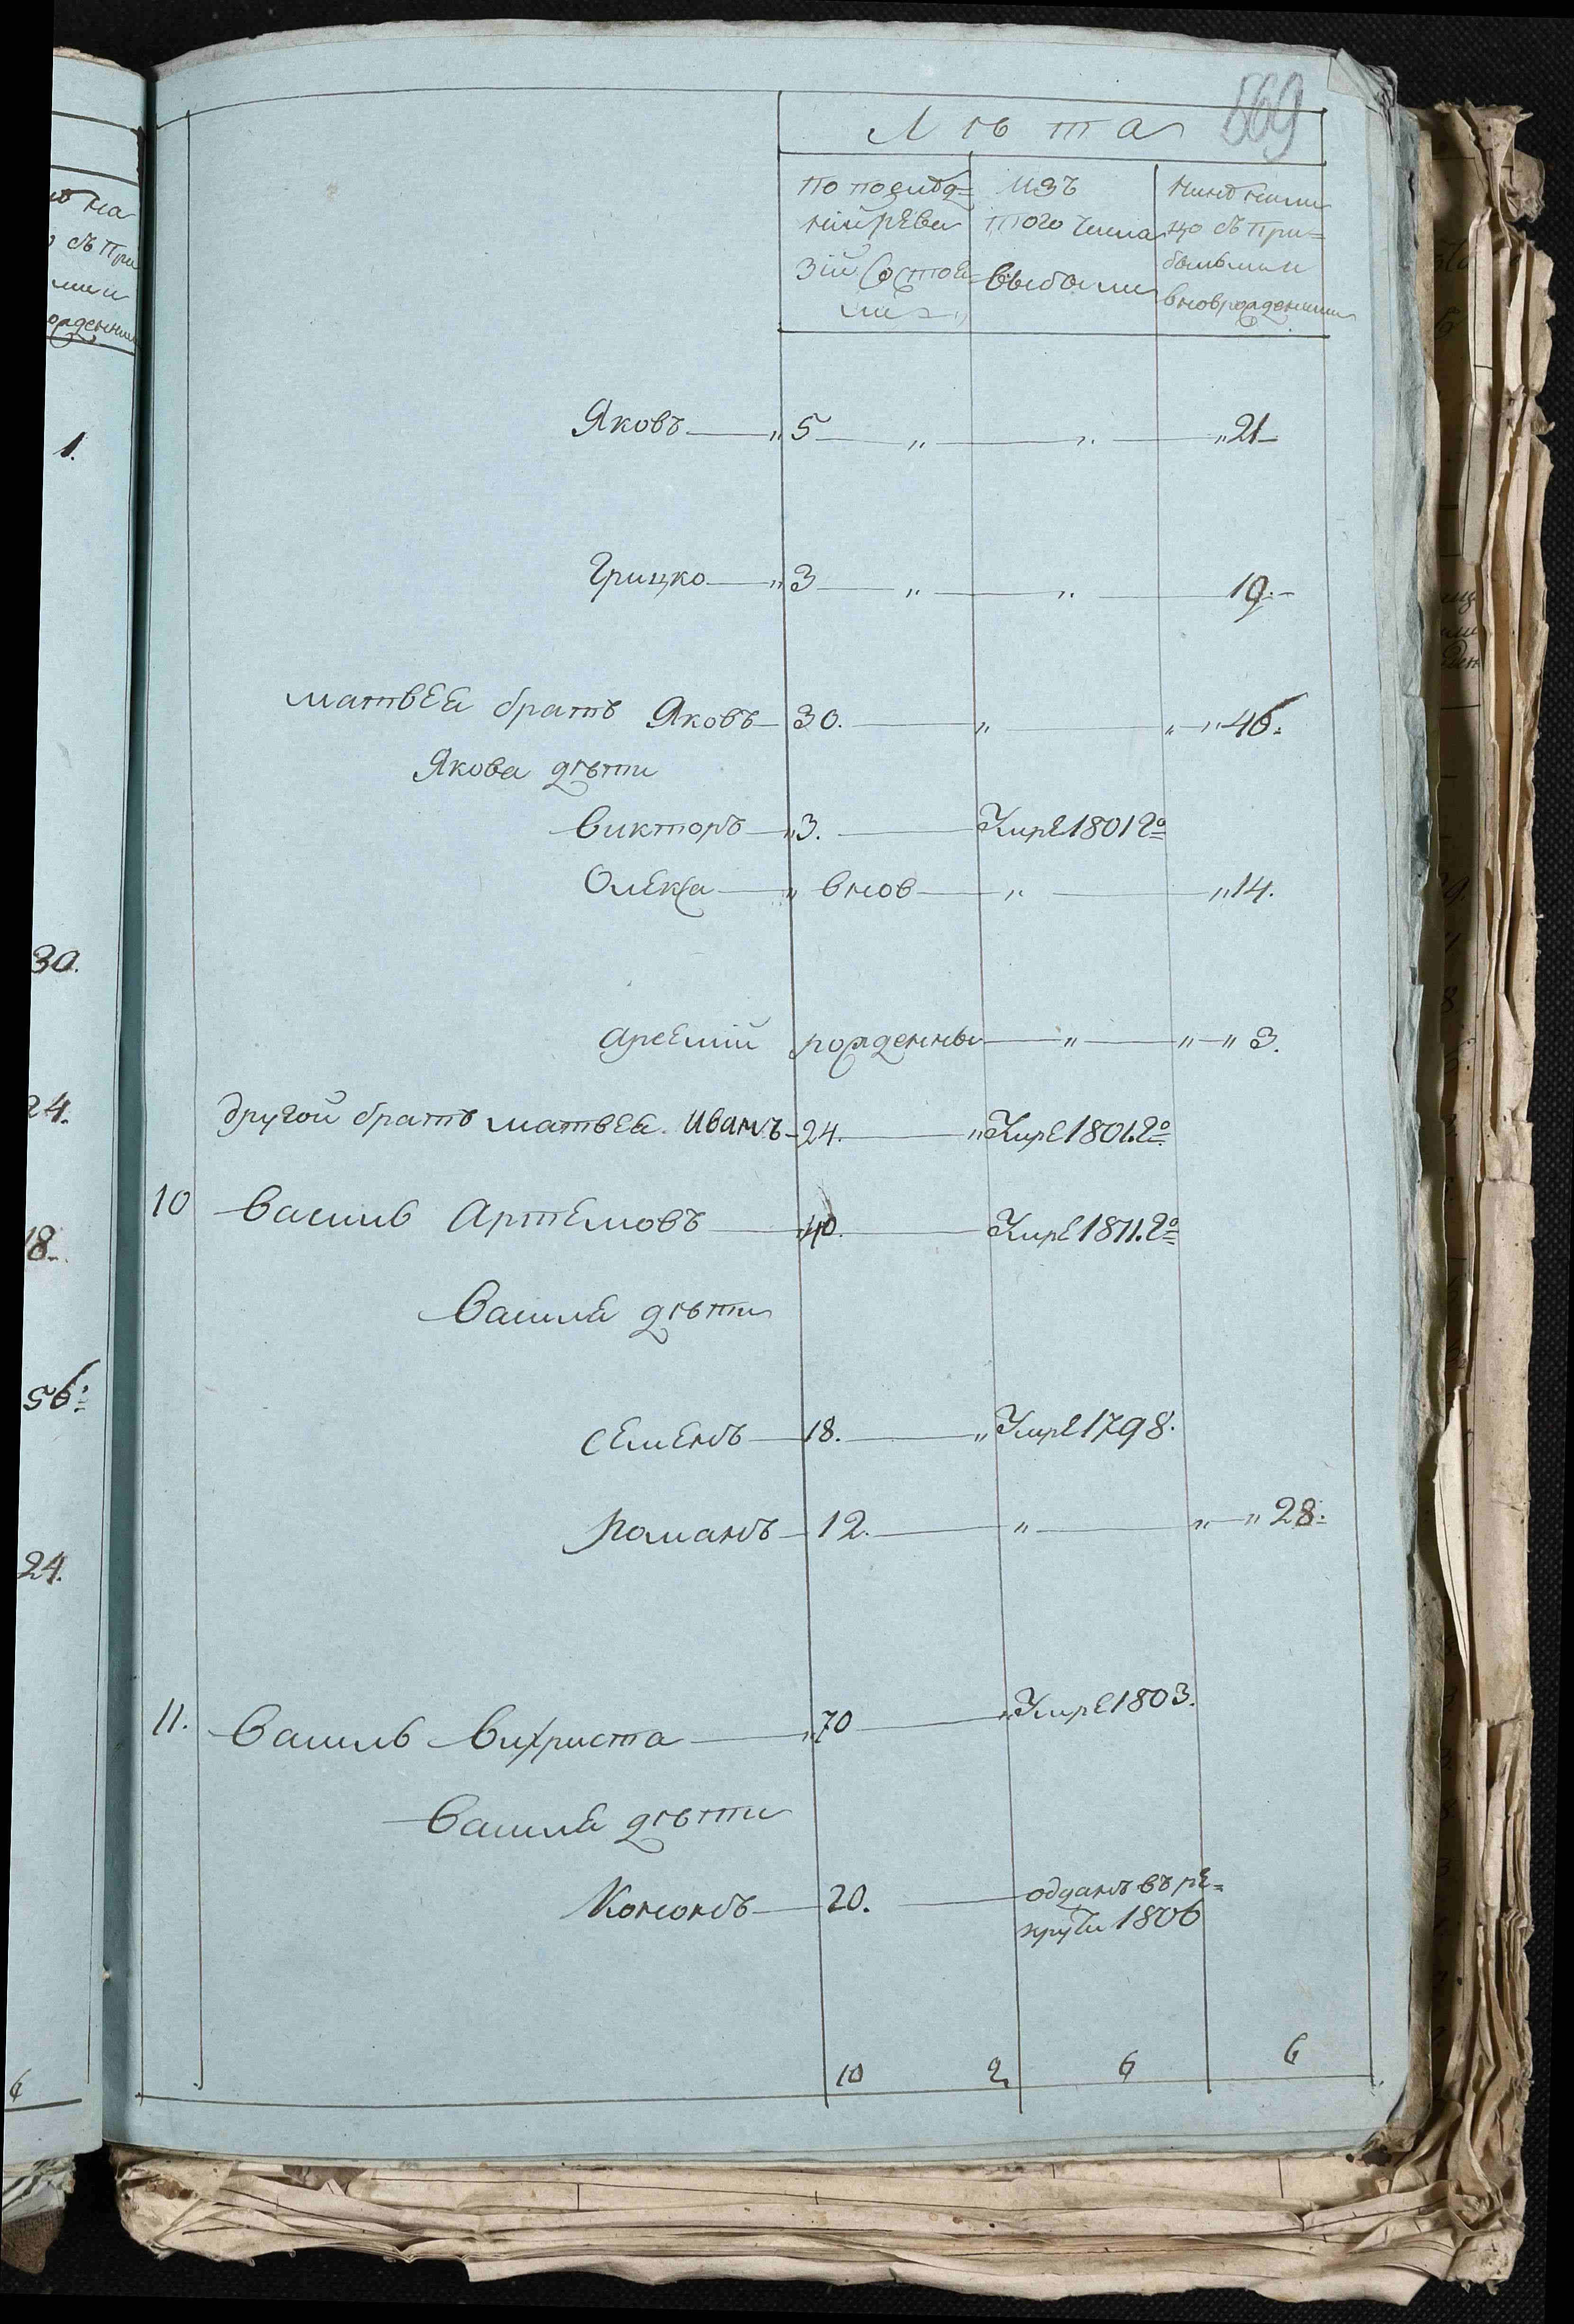 569
Лѣта
по послѣд=
ней реви
зіи состоя
ли
изъ
того числа
выбыли
нынѣ нали
цо съ при=
былыми и
вновь рожденными
Яковъ 5 21
Грицко 3 19.
матвея братъ Яковъ 30. 46.
Якова дѣти
Викторъ 3. Умре 1801 го
Олекса внов 14.
Арсеній рожденны 3.
другой братъ матвея Иванъ 24. Умре 1801. го
10 Василь Артемовъ 40. Умре 1811. го
Василя дѣти
Семенъ 18. Умре 1798.
Романъ 12. 28.
11. Василь Вихриста 70 Умре 1803.
Василя дѣти
Кононъ 20. одданъ въ ре=
круты 1806
10 2 6 6
1.
30.
24.
18.
56.
24.
6